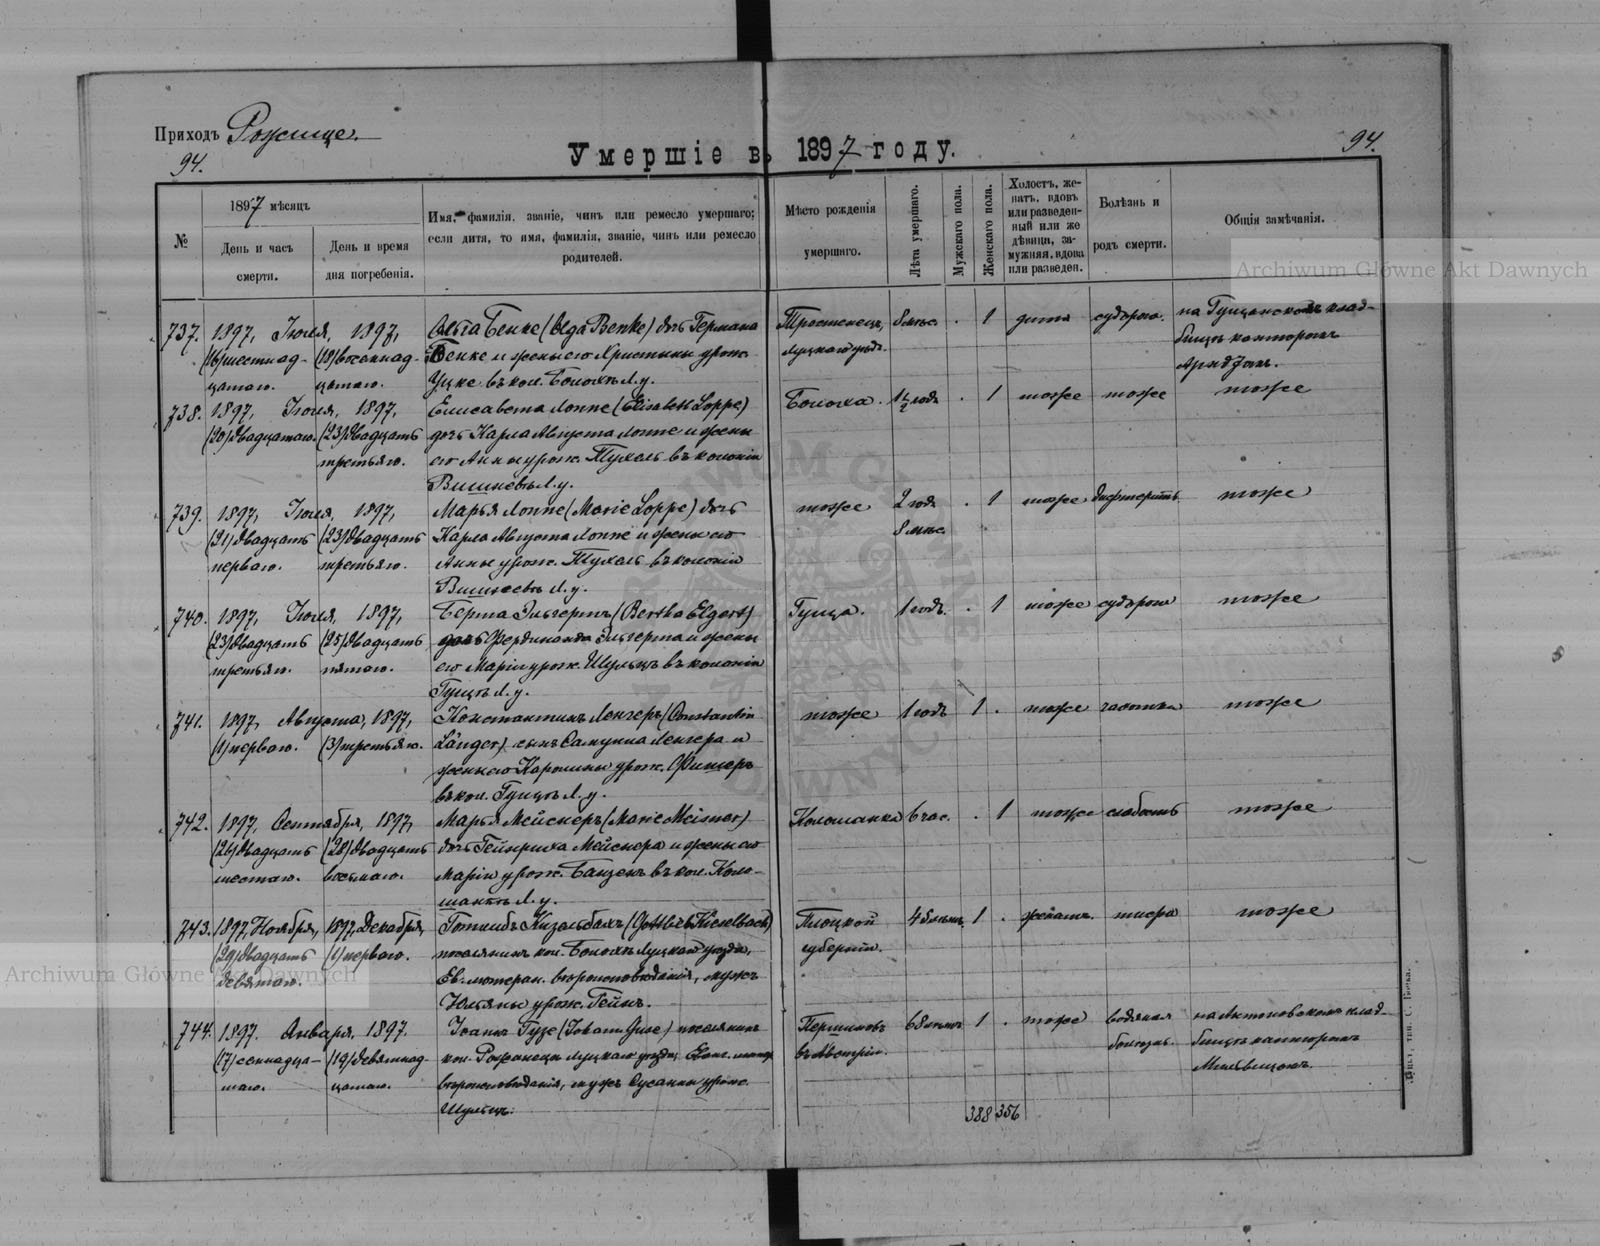 Приходъ Рожище.
94.
Умершіе въ 1897 году.
94.
№
1897 мѣсяцъ
День и часъ смерти.
День и время дня погребенія.
Имя, фамилія, званіе, чинъ или ремесло умершаго; если дитя, то имя, фамилія, званіе, чинъ или ремесло родителей.
Мѣсто рожденія умершаго.
Лѣта умершаго.
Мужскаго пола.
Женскаго пола.
Холостъ, женатъ, вдовъ или разведенный или же дѣвица, замужняя, вдова или разведен.
Болѣзнь и родъ смерти.
Общія замѣчанія.
Archiwum Główne Akt Dawnych
737. 1897, Іюля, 1897, Ольга Бенке (Olga Benke) дочь Германа Тростенецъ, 8 мѣс. . 1 дитя судорога. на Гущанскомъ клад-
(16) шестнад- (18) восемнад- Бенке и жены его Христины урож. Луцкаго уѣзд. бищѣ канторомъ
цатаго. цатаго. Уцке въ кол. Болохъ Л. у. Арндтомъ.
738. 1897, Іюля, 1897, Елисавета Лоппе (Elisabeth Loppe) Болоха. 1½ годъ . 1 тоже тоже тоже
(20) двадцатаго. (23) двадцать дочь Карла Августа Лоппе и жены
третьяго. его Анны урож. Тухель въ колоніи
Вишневѣ Л. у.
739. 1897, Іюля, 1897, Марья Лоппе (Marie Loppe) дочь тоже 2 года . 1 тоже дифтеритъ тоже
(21) двадцать (23) двадцать Карла Августа Лоппе и жены его 8 мѣс.
перваго. третьяго. Анны урож. Тухель въ колоніи
Вишневѣ Л. у.
740. 1897, Іюля, 1897, Берта Эльгертъ (Bertha Elgert) Гуща. 1 годъ. . 1 тоже судорога тоже
(23) двадцать (25) двадцать дочь Фердинанда Эльгерта и жены
третьяго. пятаго. его Маріи урож. Шульцъ въ колоніи
Гущѣ Л. у.
741. 1897, Августа, 1897, Константинъ Ленгеръ (Constantin тоже 1 годъ 1 . тоже чахотка тоже
(1) перваго. (3) третьяго. Länger) сынъ Самуила Ленгера и
жены его Каролины урож. Фишеръ
въ кол. Гущѣ Л. у.
742. 1897, Сентября, 1897, Марья Мейснеръ (Marie Meisner) Коломанка 6 час. . 1 тоже слабость тоже
(26) двадцать (28) двадцать дочь Гейнриха Мейснера и жены его
шестаго. восьмаго. Маріи урож. Банзенъ въ кол. Коло-
манкѣ Л. у.
743. 1897, Ноября, 1897, Декабря, Готлибъ Кизельбахъ (Gottlieb Kieselbach) Плоцкой 45 лѣтъ. 1 . женатъ. тифа тоже
(29) двадцать (1) перваго. поселянинъ кол. Болохъ Луцкаго уѣзда, губерніи.
девятаго. Ев. лютеран. вѣроисповѣданія, мужъ
Юльяны урож. Гейнъ.
744. 1897. Января, 1897. Іоганъ Гузе (Johann Guse) поселянинъ 68 лѣтъ 1 . тоже водяная на Антоновскомъ клад-
(17) семнадца- (19) девятнад- кол. Рожанецъ Луцкаго уѣзда, Еванг. лютер. въ Австріи. болѣзнь. бищѣ канторомъ
таго. цатаго. вѣроисповѣданія, мужъ Сусанны урож.
Шульцъ.
388 356
Archiwum Główne Akt Dawnych